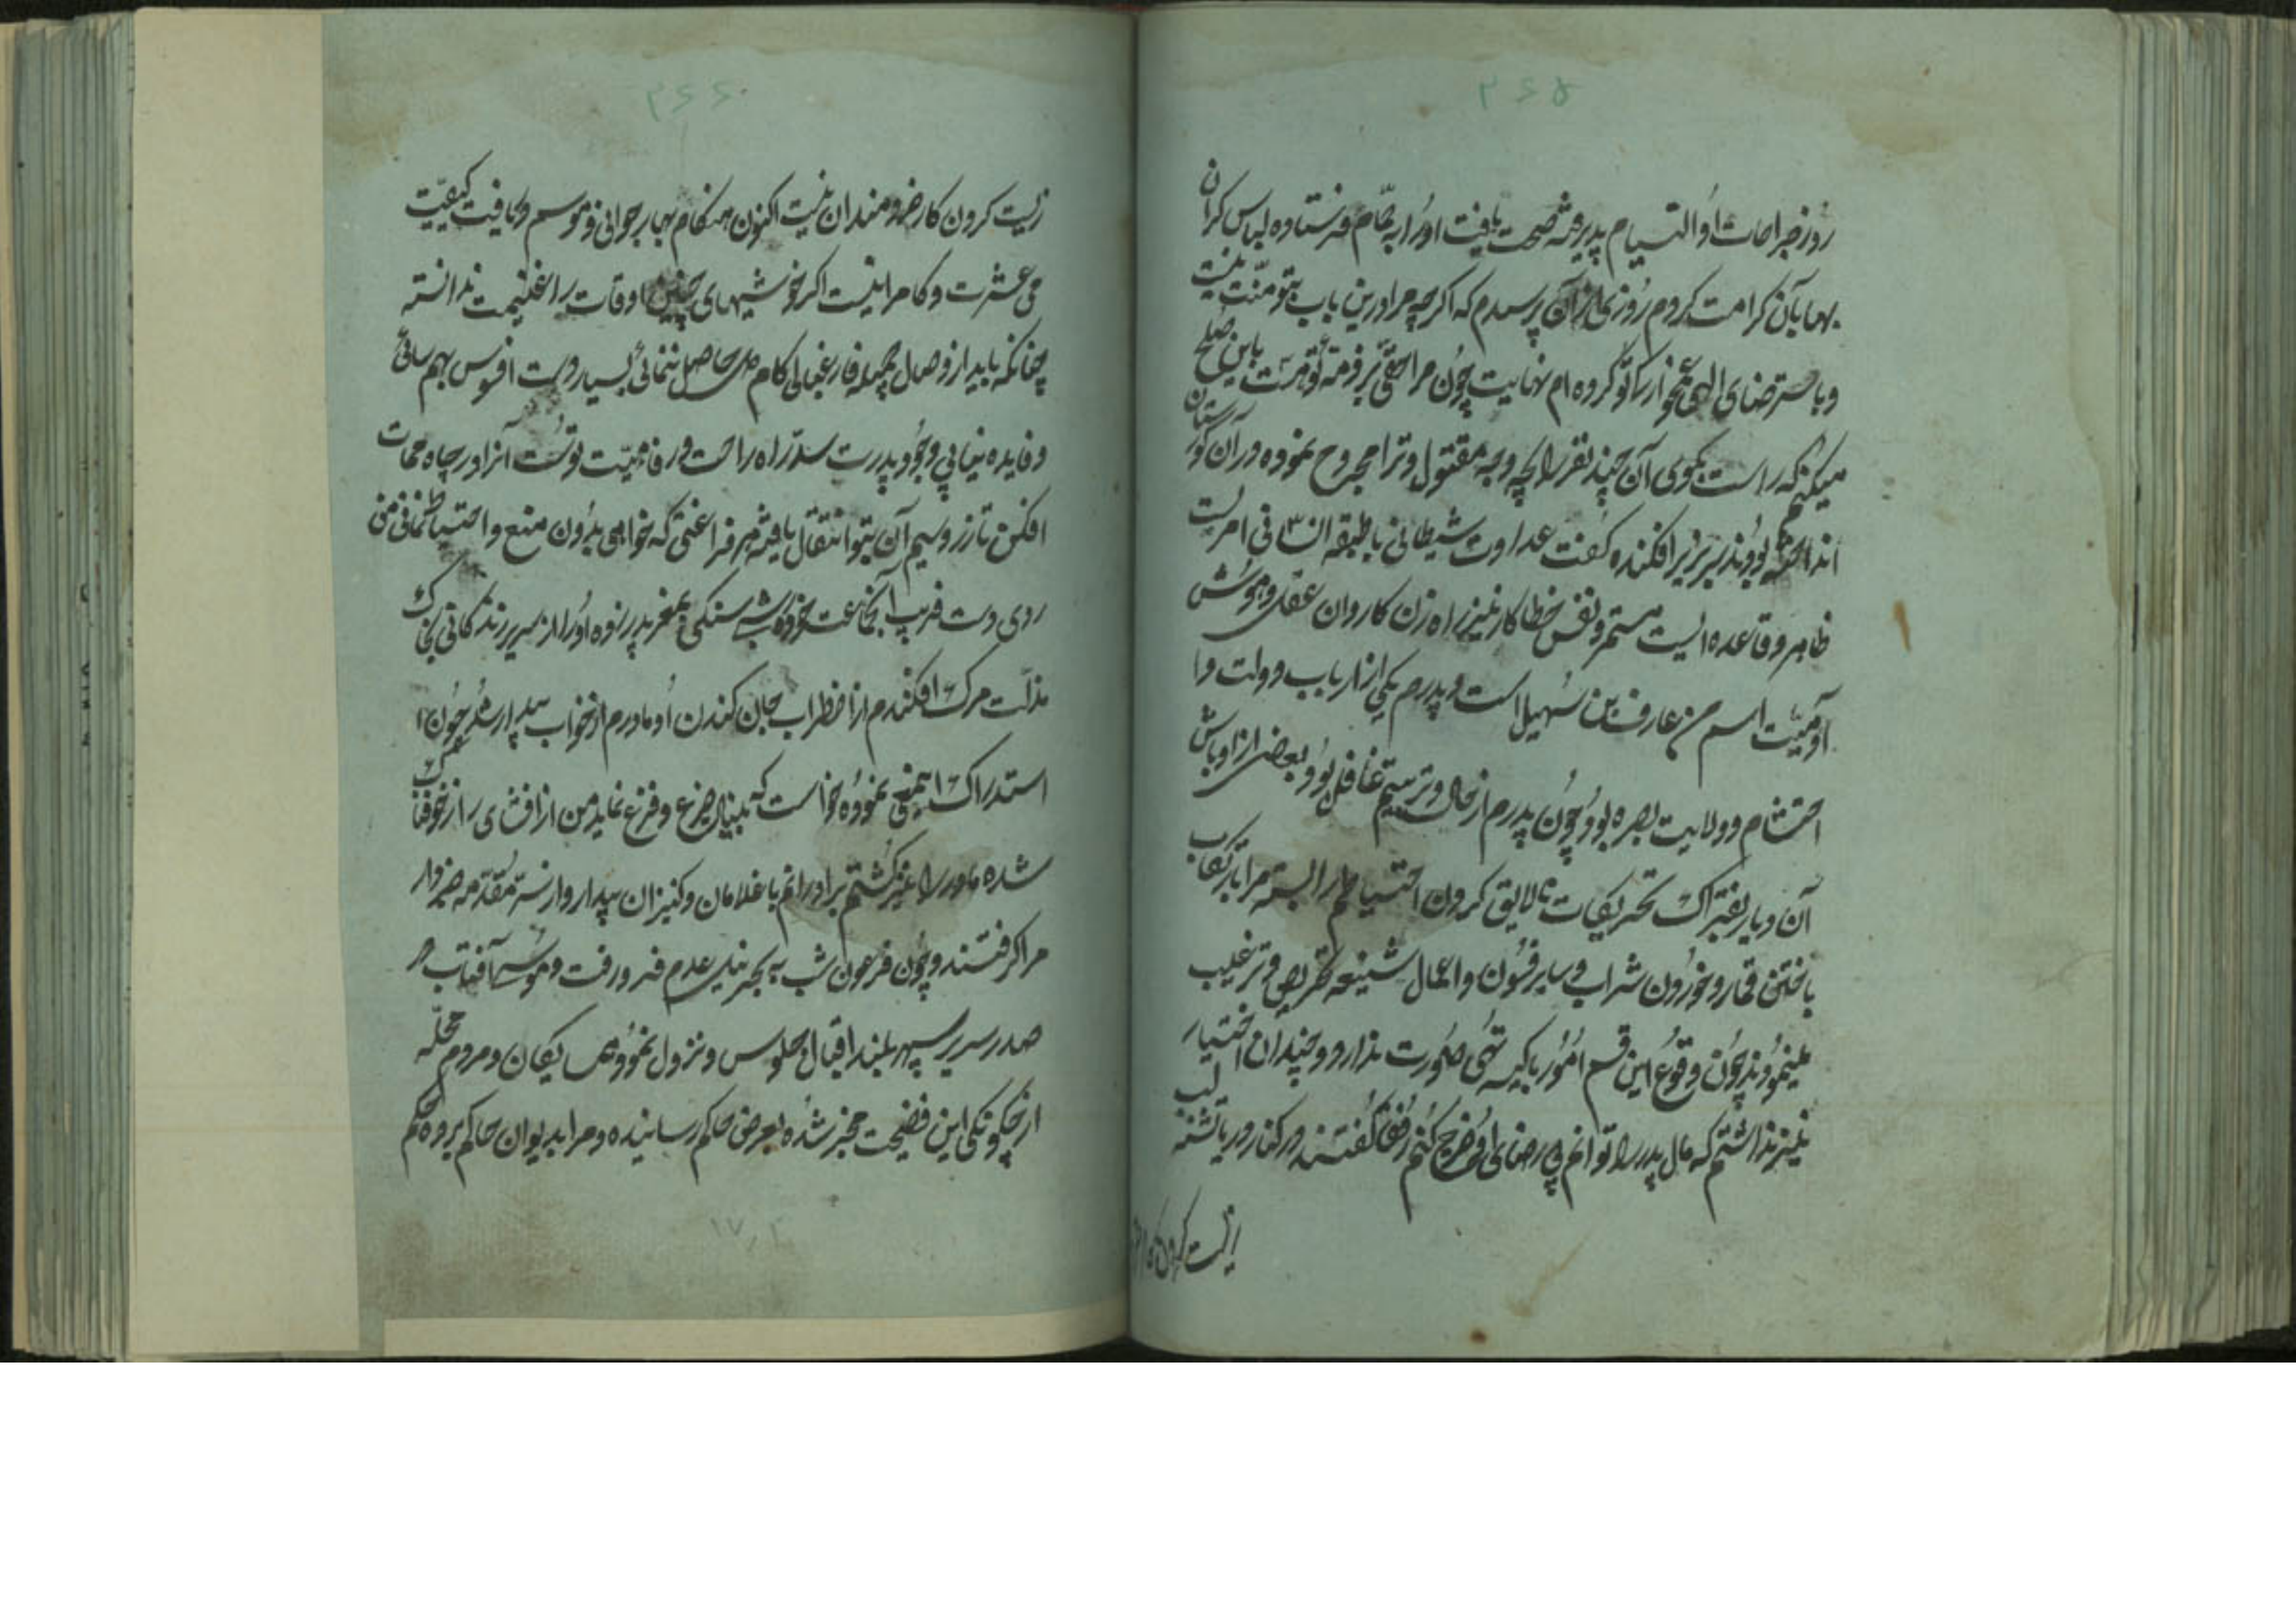 ۳۶۵
روز جراحات او التیام پذیرفته صحت یافت او را به حمام فرستاده لباس گران
بها بآن کرامت کردم روزی از آن پرسیدم که اگر چه مرا درین باب بتو منت نیست
و با سترضای الهی غمخوارگی تو کرده ام نهایت چون مرا حقی بر ذمه تو هست باین صلح
میکنم که راست بگوی آن چند نفر را بچه وجه مقتول و ترا مجروح نموده در آن گورستان
انداخته بودند سر بزیر افکنده گفت عداوت شیطانی با طبقه انسانی امریست
ظاهر و قاعده ایست مستمر و نفس خطا کار نیز راه زن کاروان عقل و هوش
آدمیت اسم من عارف بن سهیل است و پدرم یکی از ارباب دولت و ا
احتشام دولایت بصره بود و چون پدرم از حال و ترتیبم غافل بود بعضی از اوباش
آن دیار بفتراک تحریکات نالایق کردن احتیاطم را بسته مرا بارتکاب
باختن قمار و خوردن شراب و سایر فسون و اعمال شنیعه تحریص و ترغیب
مینمودند چون وقوع این قسم امور با کیسه تهی صورت ندارد و چندان اختیار
نیز نداشتم که مال پدر را توانم بی رضای او خرج کنم رفقا گفتند در کنار دریا تشنه لب
زیست کردن کار خر
۳۶۶
زیست کردن کار خردمندان نیست اکنون هنگام بهار جوانی و موسم دریافت کیفیت
می عشرت و کامرانیست اگر خوشیهای چنین اوقات را غنیمت ندانسته
چنانکه باید از وصال جمیله فارغبالی کام دل حاصل ننمائی بسیار دست افسوس بهم سائی
و فایده نیابی وجود پدرت سد راه راحت و رفاهیت توست آنرا در چاه ممات
افکن تا زر و سیم آن بتو انتقال یافته هر فراغتی که خواهی بدون منع و احتیاط توانی
روی دست فریب آنجماعت خورده شب سنگی بمغز پدر زده او را از سریر زندگانی بخاک
مذلت مرگ افکندم از اضطراب جان کندن او مادرم از خواب بیدار شد چون ا
استدراک اینمعنی نموده خواست که بنیاد جزع و فزع نماید من از افشای راز خوفناک
شده مادر را نیز کشتم برادرانم با غلامان و کنیزان بیدار و از مقدمه خبردار
مرا گرفتند و چون فرعون شب به بحر نیل عدم فرو رفت و موسی آفتاب بر
صدر سریر سپهر بلند اقبال جلوس و نزول نمود همسایگان و مردم محله
از چگونگی این فضیحت مخبر شده بعرض حاکم رسانیده و مرا بدیوان حاکم برده حکم